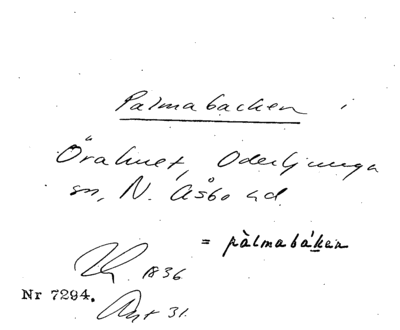 Palmabacken i
Örahult, Oderljunga
sn, N. Åsbo hd.
= pàlmabákен
1836
Nr 7294. Ant 31.